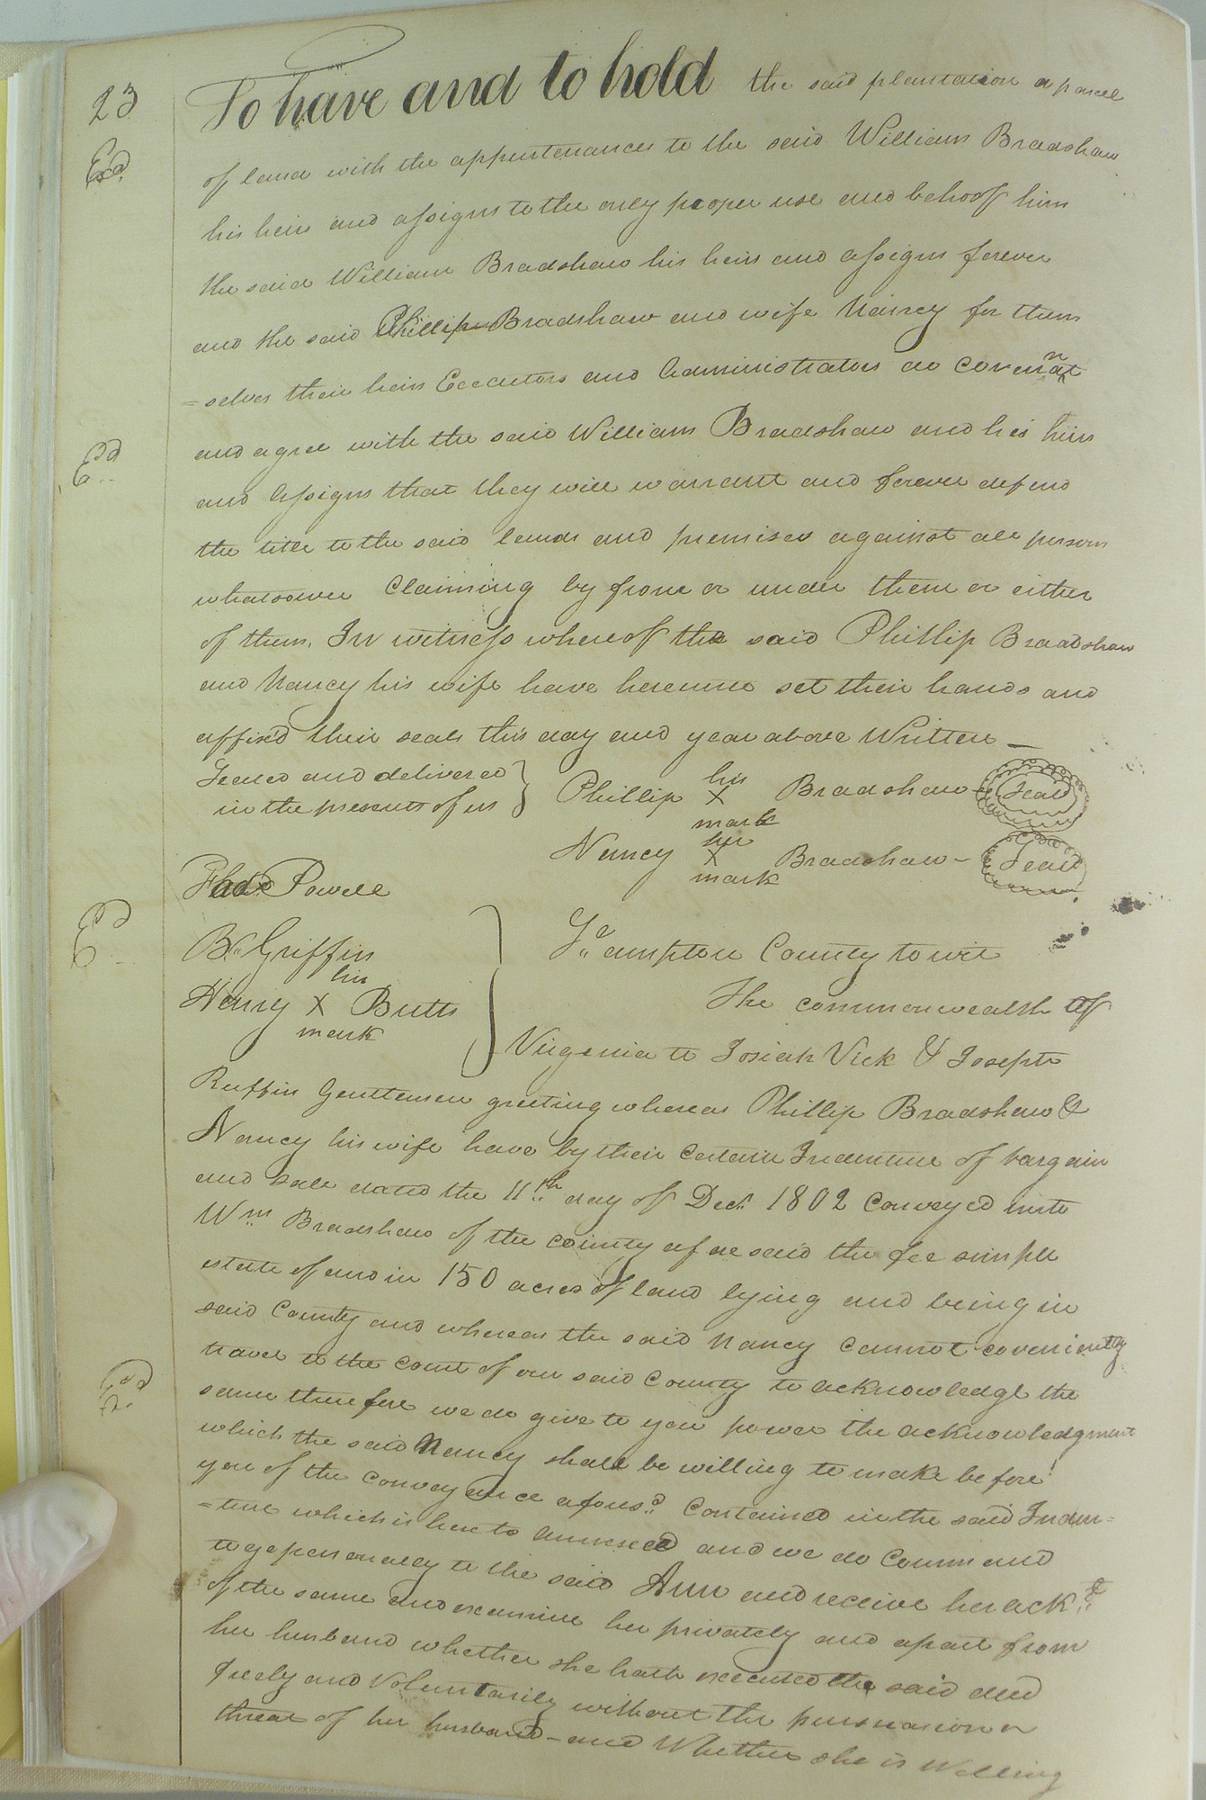 23
To have and to hold the said plantation or parcel
Ed
of land with the appertenances to the said William Bradshaw
his heirs and assigns to the only proper use and behoof him
the said William Bradshaw his heirs and assigns forever
and the said Phillip Bradshaw and wife Nancy for them
=selves their heirs Executors and Administrators do covenant
Ed
and agree with the said William Bradshaw and his heirs
and Assigns that they will warrant and forever defend
the title to the said lands and premises against all persons
whatsoever Claiming by from or under them or either
of them. In witness whereof the said Phillip Bradshaw
and Nancy his wife have hereunto set their hands and
affix'd their seals this day and year above Written —
Sealed and delivered } Phillip his X mark Bradshaw — Seal
in the presents of us
Nancy her X mark Bradshaw — Seal
Powell
Ed
B. Griffin
Henry his X mark Butts
So ampton County to wit
The commonwealth of
Virginia to Josiah Vick & Joseph
Ruffin Gentlemen greeting whereas Phillip Bradshaw &
Nancy his wife have by their Certain Indenture of bargain
and Sale dated the 11th day of Decr. 1802 Conveyed unto
Wm Bradshaw of the county afaesaid the fee simple
estate of and in 150 acres of land lying and being in
said County and whereas the said Nancy Cannot coveniently
Ed
travel to the Court of our said County to acknowledge the
same therefore we do give to you power the acknowledgment
which the said Nancy shall be willing to make before
you of the Conveyance afores.d Contained in the said Inden=
=ture which is hereto annexed and we do Command
to go personally to the said Ann and receive her ack.t
of the same and examine her privately and apart from
her husband whether she hath executed the said deed
freely and Voluntarily without the persuasion or
threat of her husband — and Whether she is Willing